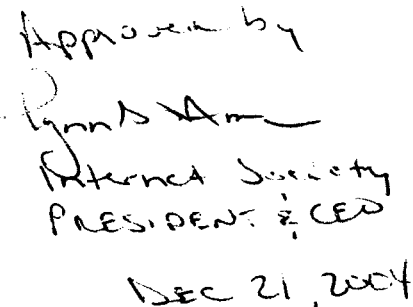 Approved by
Lynn St Amour
Internet Society
PRESIDENT & CEO
DEC 21, 2004